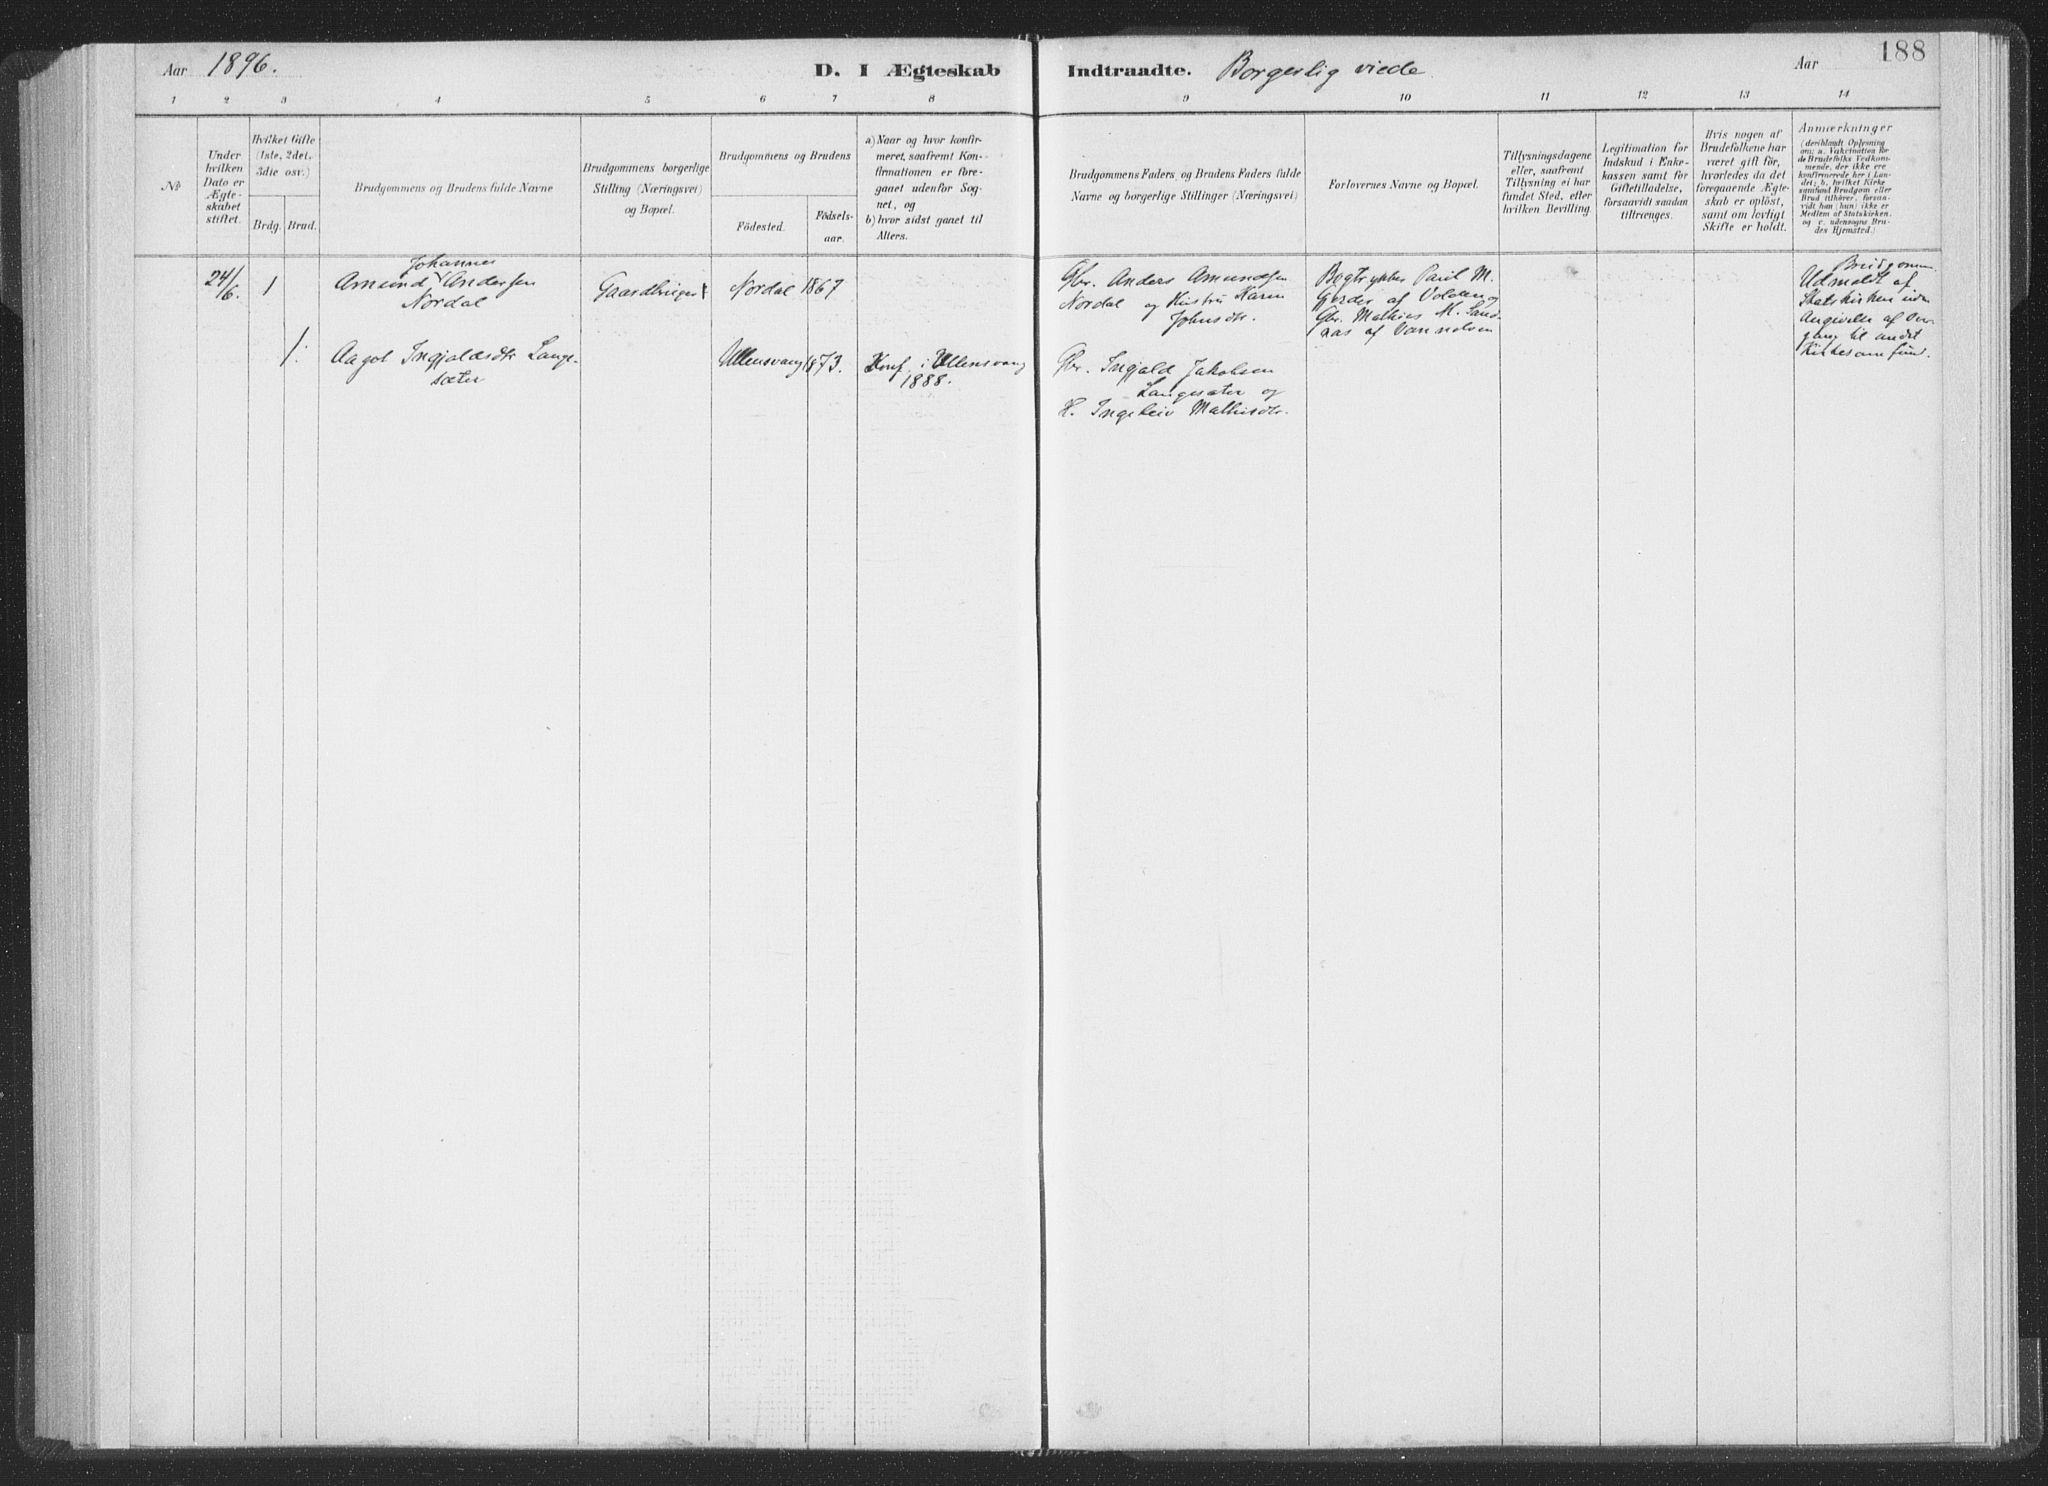 Aar 1896.
D. I Ægteskab Indtraadte. Borgerlig viede
Aar 188
1 2 3 4 5 6 7 8 9 10 11 12 13 14
No
Under
hvilken
Dato er
Ægte-
skabet
stiftet.
Hvilket Gifte
(1ste, 2det,
3die osv.)
Brdg. Brud.
Brudgommens og Brudens fulde Navne
Brudgommens borgerlige
Stilling (Næringsvei)
og Bopæl.
Brudgommens og Brudens
Födested.
Födsels-
aar.
a) Naar og hvor konfir-
meret, saafremt Kon-
firmationen er fore-
gaaet udenfor Sog-
net, og
b) hvor sidst gaaet til
Alters.
Brudgommens Faders og Brudens Faders fulde
Navne og borgerlige Stillinger (Næringsvei)
Forlovernes Navne og Bopæl.
Tillysningsdagene
eller, saafremt
Tillysning ei har
fundet Sted, efter
hvilken Bevilling.
Legitimation for
Indskud i Enke-
kassen samt for
Giftetilladelse,
forsaavidt saadan
tiltrænges.
Hvis nogen af
Brudefolkene har
været gift för,
hvorledes da det
foregaaende Ægte-
skab er oplöst,
samt om lovligt
Skifte er holdt.
Anmærkninger
(deriblandt Oplysning
om: a. Vakcination for
de Brudefolks Vedkom-
mende, der ikke ere
konfirmerede her i Lan-
det; b. hvilket Kirke
samfund Brudgom eller
Brud tilhörer, forsaa-
vidt han (hun) ikke er
Medlem af Statskirken.
og c. udensogns Bru-
des Hjemsted.)
24/6. 1
Johannes
Amund Andersen
Nordal
Gaardbruger
Nordal 1867
Gbr. Anders Amundsen
Nordal og Hustru Karen
Johnsdr.
Bogtrykker Paul M.
Gjerder af Volden og
Gbr. Mathias M. Sand-
aas af Vannelven
Brudgommen
Udmeldt af
Statskirken uden
Angivelse af Over-
gang til andet
Kirkesamfund.
1. Aagot Ingjaldsdtr Lange-
sæter
Ullensvang 1873.
Konf. i Ullensvang
1888.
Gbr. Ingjald Jakobsen
Langesæter og
H. Ingebeir Mathisdtr.